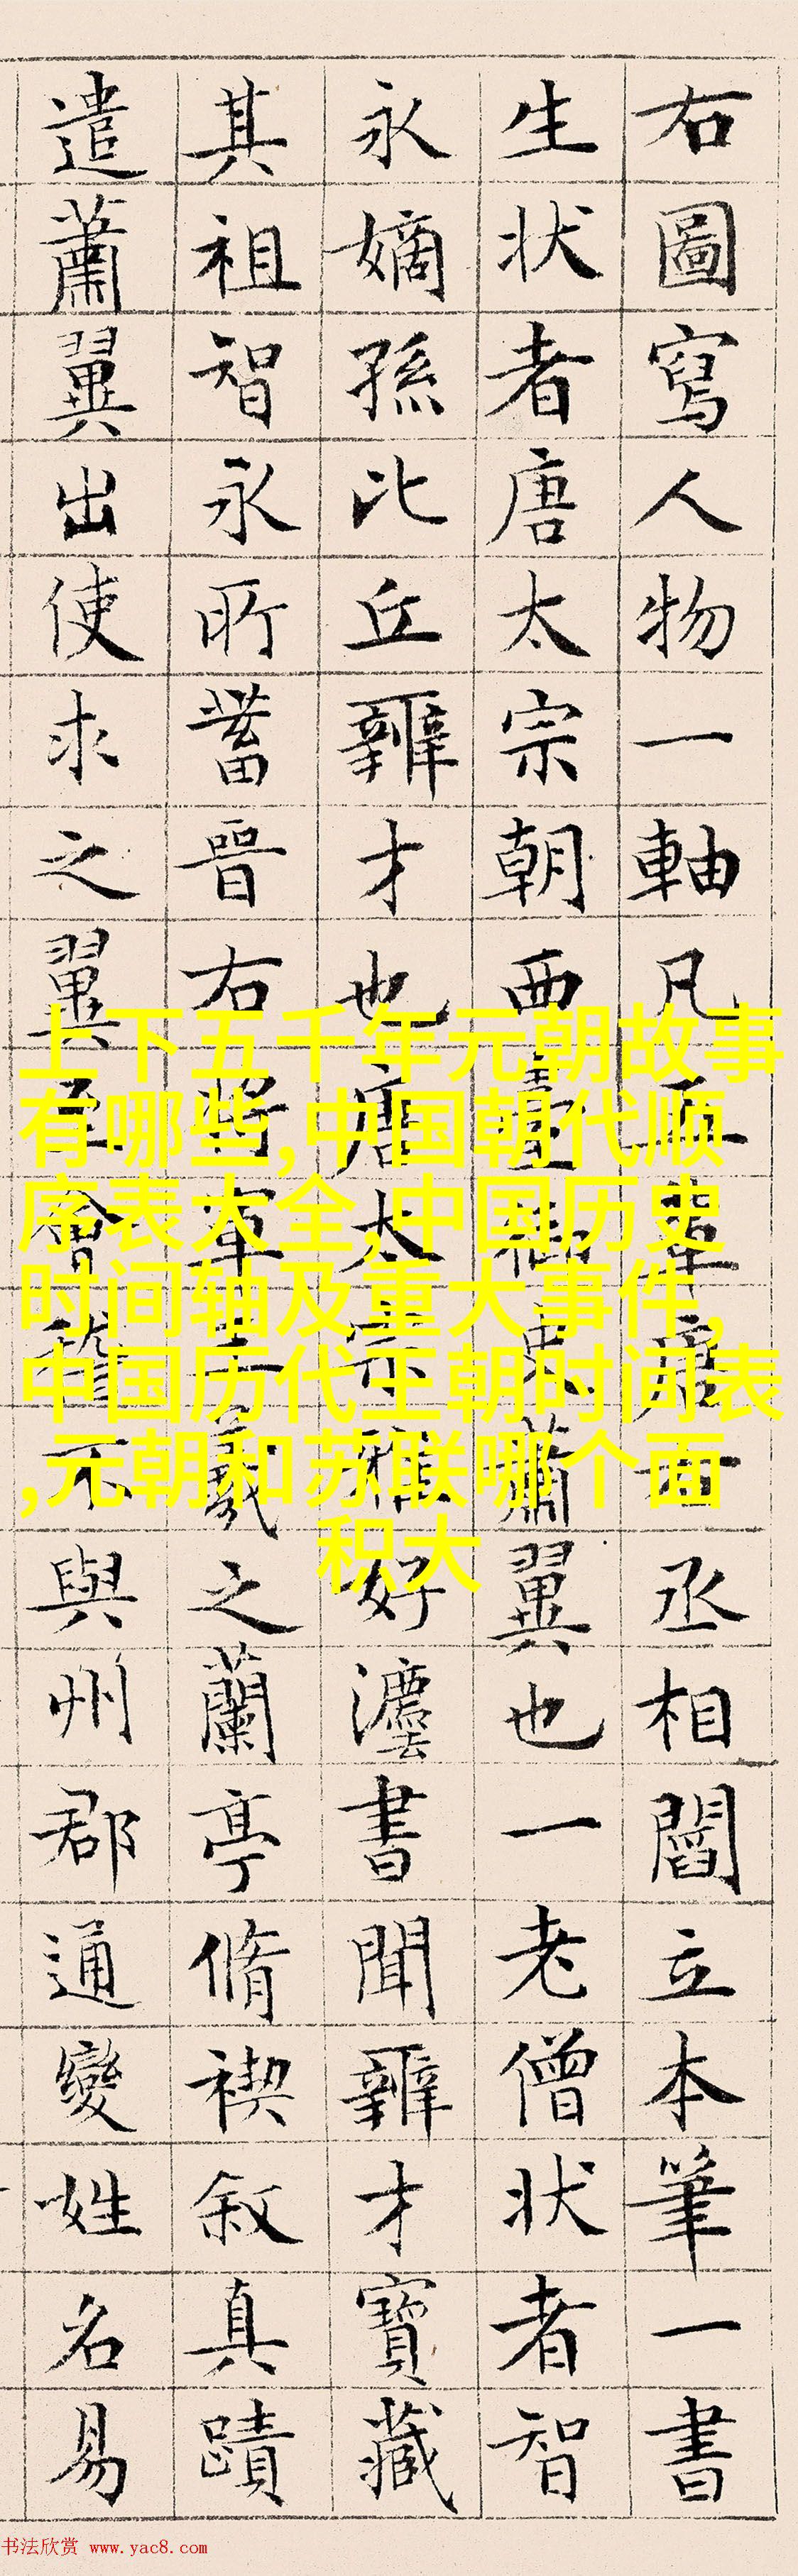 右圖寫人物一軸凡五輩唐右丞相閻立本筆一書
生状者唐太宗朝西臺御史蕭翼也一老僧状者智
永嫡孫比丘辯才也唐太宗雅好灋書聞辯才寶藏
其祖智永所蓄晉右將軍王羲之蘭亭脩禊叙真蹟
遣蕭翼出使求之翼至會稽不與州郡通變姓名易
上下五千年元朝故事
有哪些,中国朝代顺
序表大全,中国历史
时间轴及重大事件,
中国历代王朝时间表
,元朝和苏联哪个面
积大
书法欣赏 www.yac8.com